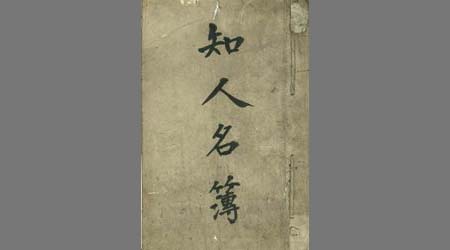 知人名簿